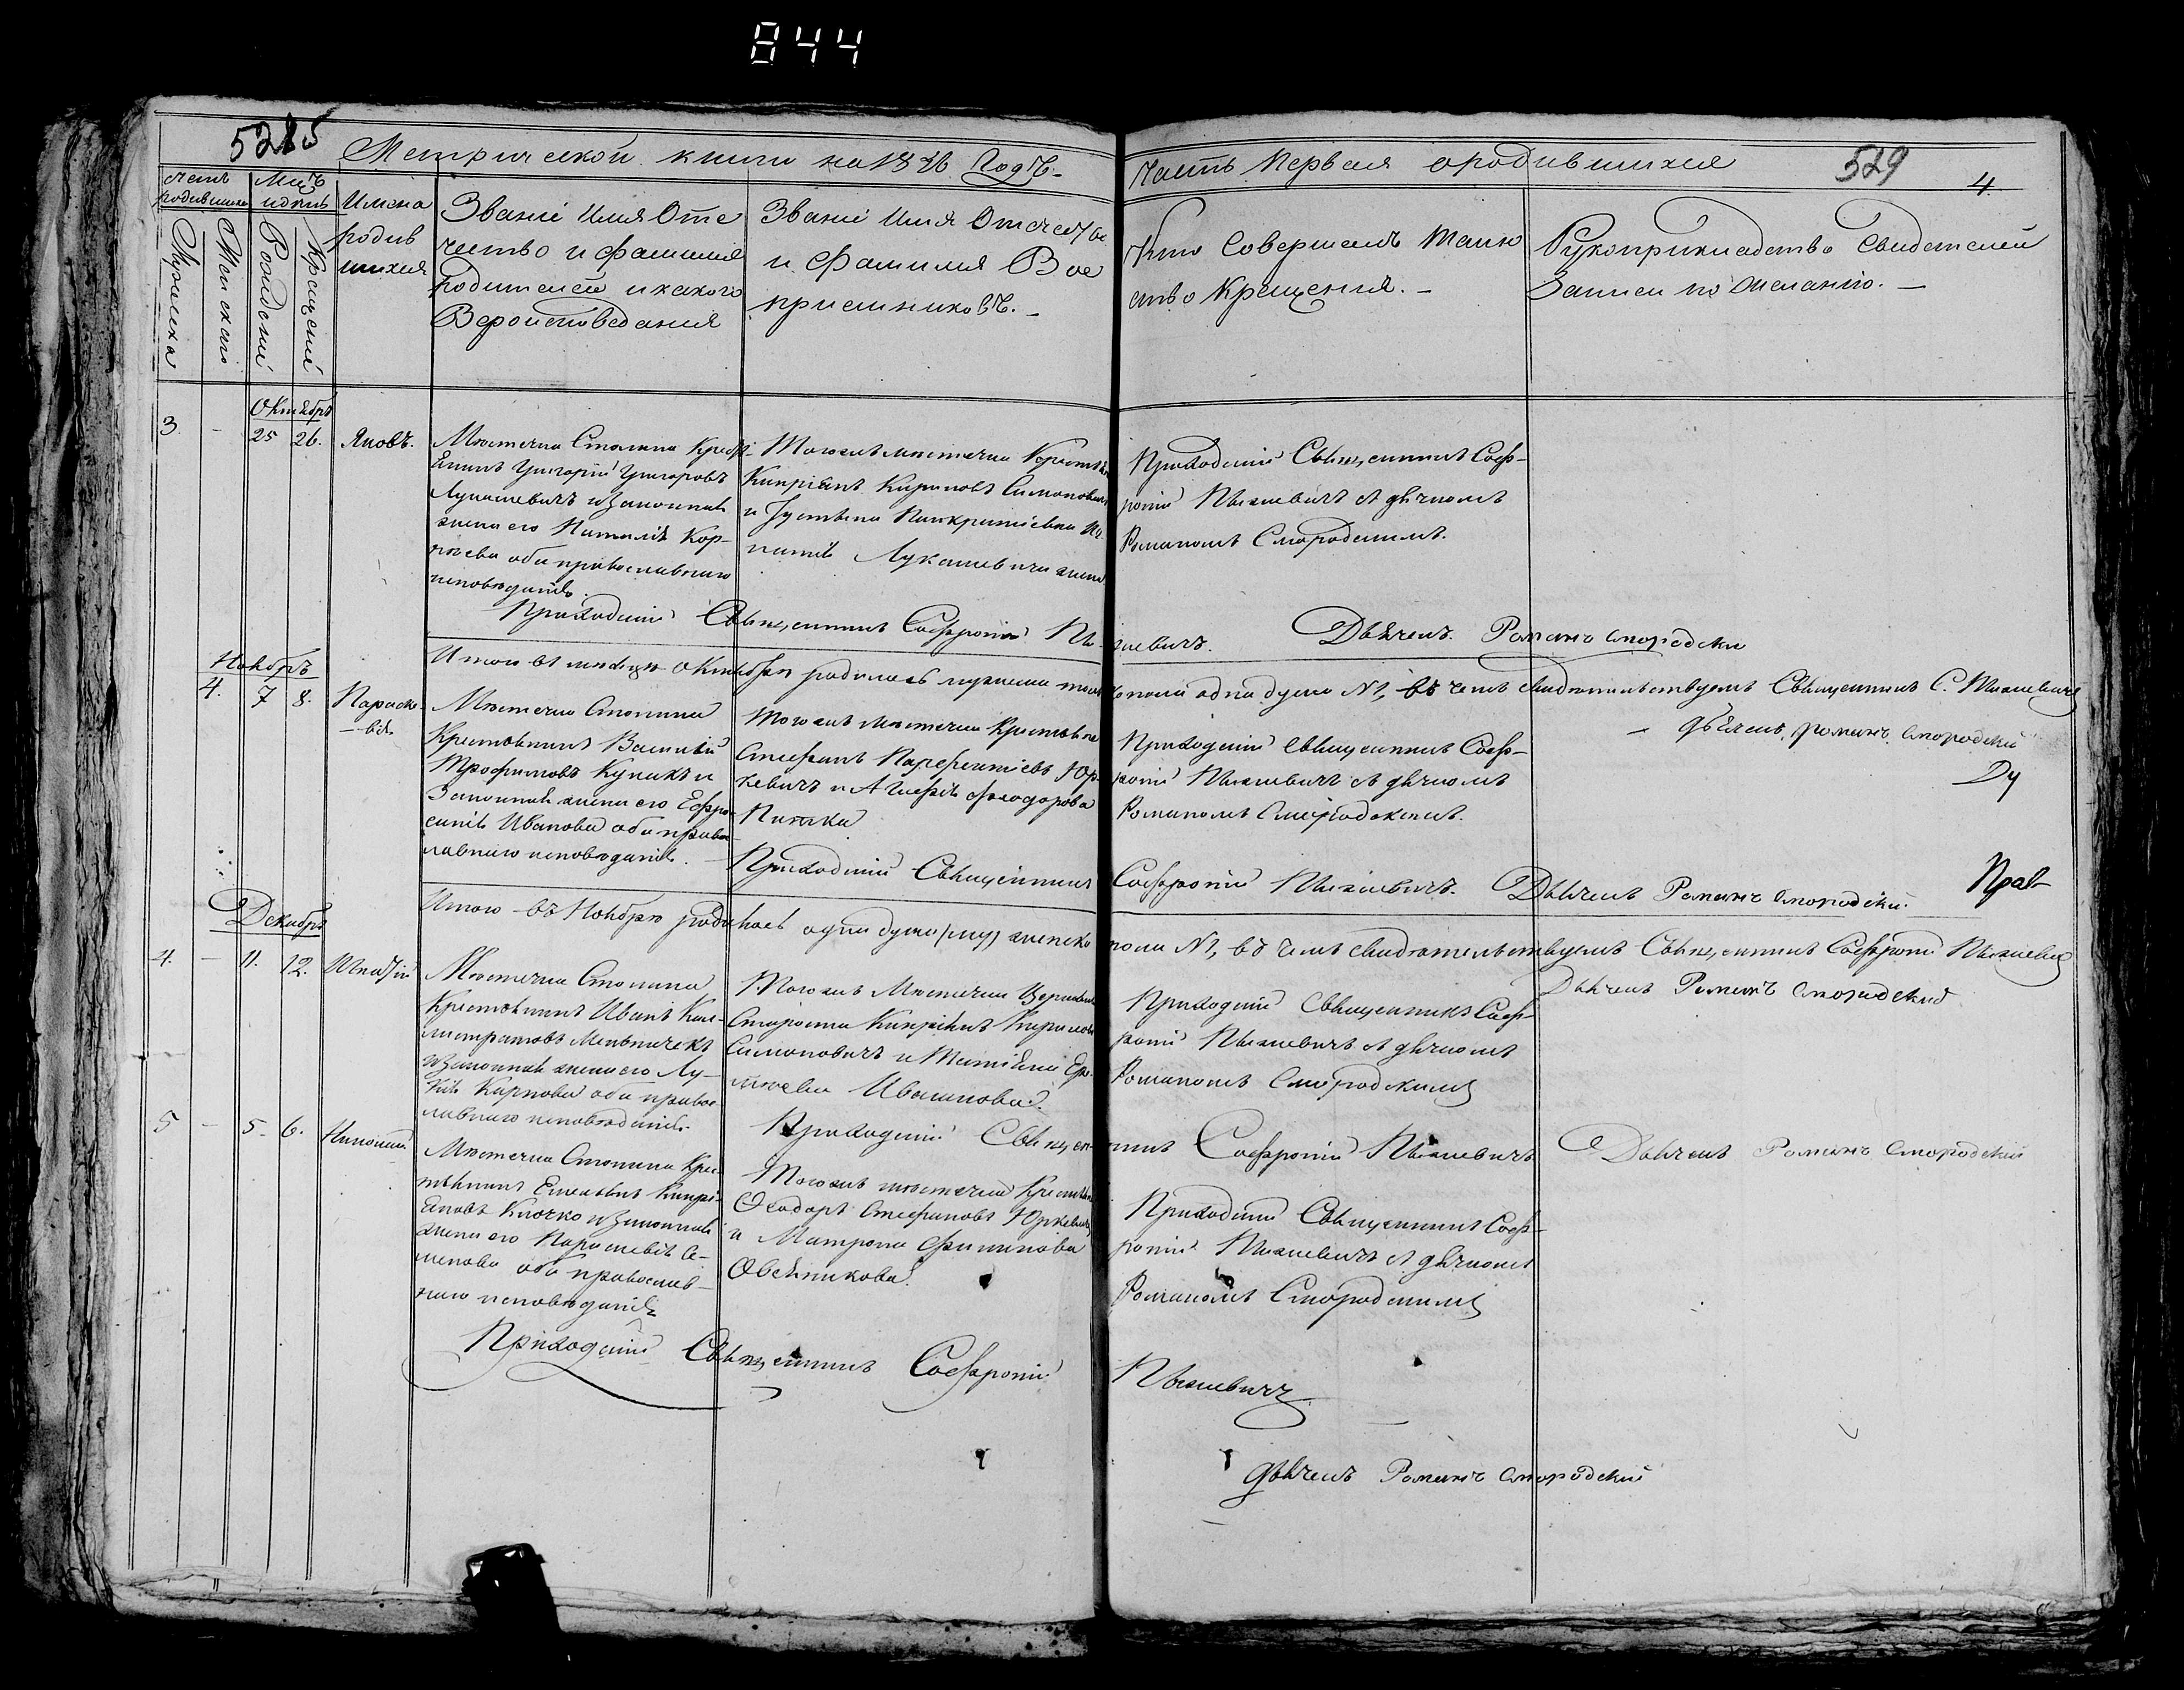 844
5285
Метрической книги на 18 Годъ.
Часть Первая о родившихся
529
4.
счетъ родившихся
Мцъ и день
Имена родившихся
Мужеска
Женскаго
Рожденія
Крещенія
Званіе Имя Оте
чество и фамилія
родителей и какого
Вероисповеданія
Званіе Имя Отечество
и Фамилія Вос
приемниковъ. -
Кто Совершалъ Таин
ство Крещенія. -
Рукоприкладство Свидетелей
Записи по желанію. -
Октябрь
3. - 25 26. Яковъ.
Мѣстечка Столина Крест-
янинъ Григорій Григоровъ
Лукашевичъ и Законная
жена его Наталія Кор-
нѣева оба православнаго
исповѣданія.
Тогожъ мѣстечка Крестьян
Кипріянъ Кириловъ Симоновичъ
и Іустина Панкратіевна
Лукашевича жена
Приходскій Священникъ Соф-
роній Пыжевичъ съ дьячкомъ
Романомъ Смородскимъ.
Приходскій Священникъ Софроній Пыжевичъ. Дьячекъ Романъ Смородски
Итого въ месяцѣ Октябрѣ родилось мужеска пола одна душа №1, въ чемъ свидѣтельствуемъ Священникъ С. Пыжевичъ
дьячекъ романъ Смородскій
Ноябрь
4. 7 8. Параске-
вія
Мѣстечка Столина
Крестьянинъ Василій
Трофимовъ Куликъ и
Законная жена его Ефро-
синія Иванова оба право
славнаго исповѣданія.
Тогожъ мѣстечка Крестьяне
Стефанъ Парфентіевъ Юр-
кевичъ и Агафія Феодорова
Приходскій Священникъ Соф-
роній Пыжевичъ съ дьячкомъ
Романомъ Смородскимъ.
Ду
Прав-
Приходскій Священникъ Софроній Пыжевичъ. Дьячекъ Романъ Смородскій.
Итого въ Ноябрѣ родилась одна душа женска пола №1, въ чемъ свидѣтельствуемъ Священникъ Софроній Пыжевичъ
Дьячекъ Романъ Смородскій
Декабрь
4. - 11. 12. Игнатій
Мѣстечка Столина
Крестьянинъ Иванъ Кал-
листратовъ Мельничекъ
и Законная жена его Лу-
кія Карпова оба право-
славнаго исповѣданія.
Тогожъ Мѣстечка Церковный
Староста Кипріянъ Кириловъ
Симоновичъ и Татіяна
Ивашкова.
Приходскій Священникъ Соф-
роній Пыжевичъ съ дьячкомъ
Романомъ Смородскимъ
Приходскій Священникъ Софроній Пыжевичъ Дьячекъ Романъ Смородскій
5 - 5. 6. Николай
Мѣстечка Столина Крес-
тьянинъ Емельянъ Кипрі-
яновъ Клочко и Законная
жена его Параскевія Се-
менова оба православ-
наго исповѣданія
Тогожъ мѣстечка Крестьян
Феодоръ Стефановъ Юркевичъ
и Матрона Филипова
Овсяникова.
Приходскій Священникъ Соф-
роній Пыжевичъ съ дьячкомъ
Романомъ Смородскимъ
Приходскій Священникъ Софроній Пыжевичъ
дьячекъ Романъ Смородскій